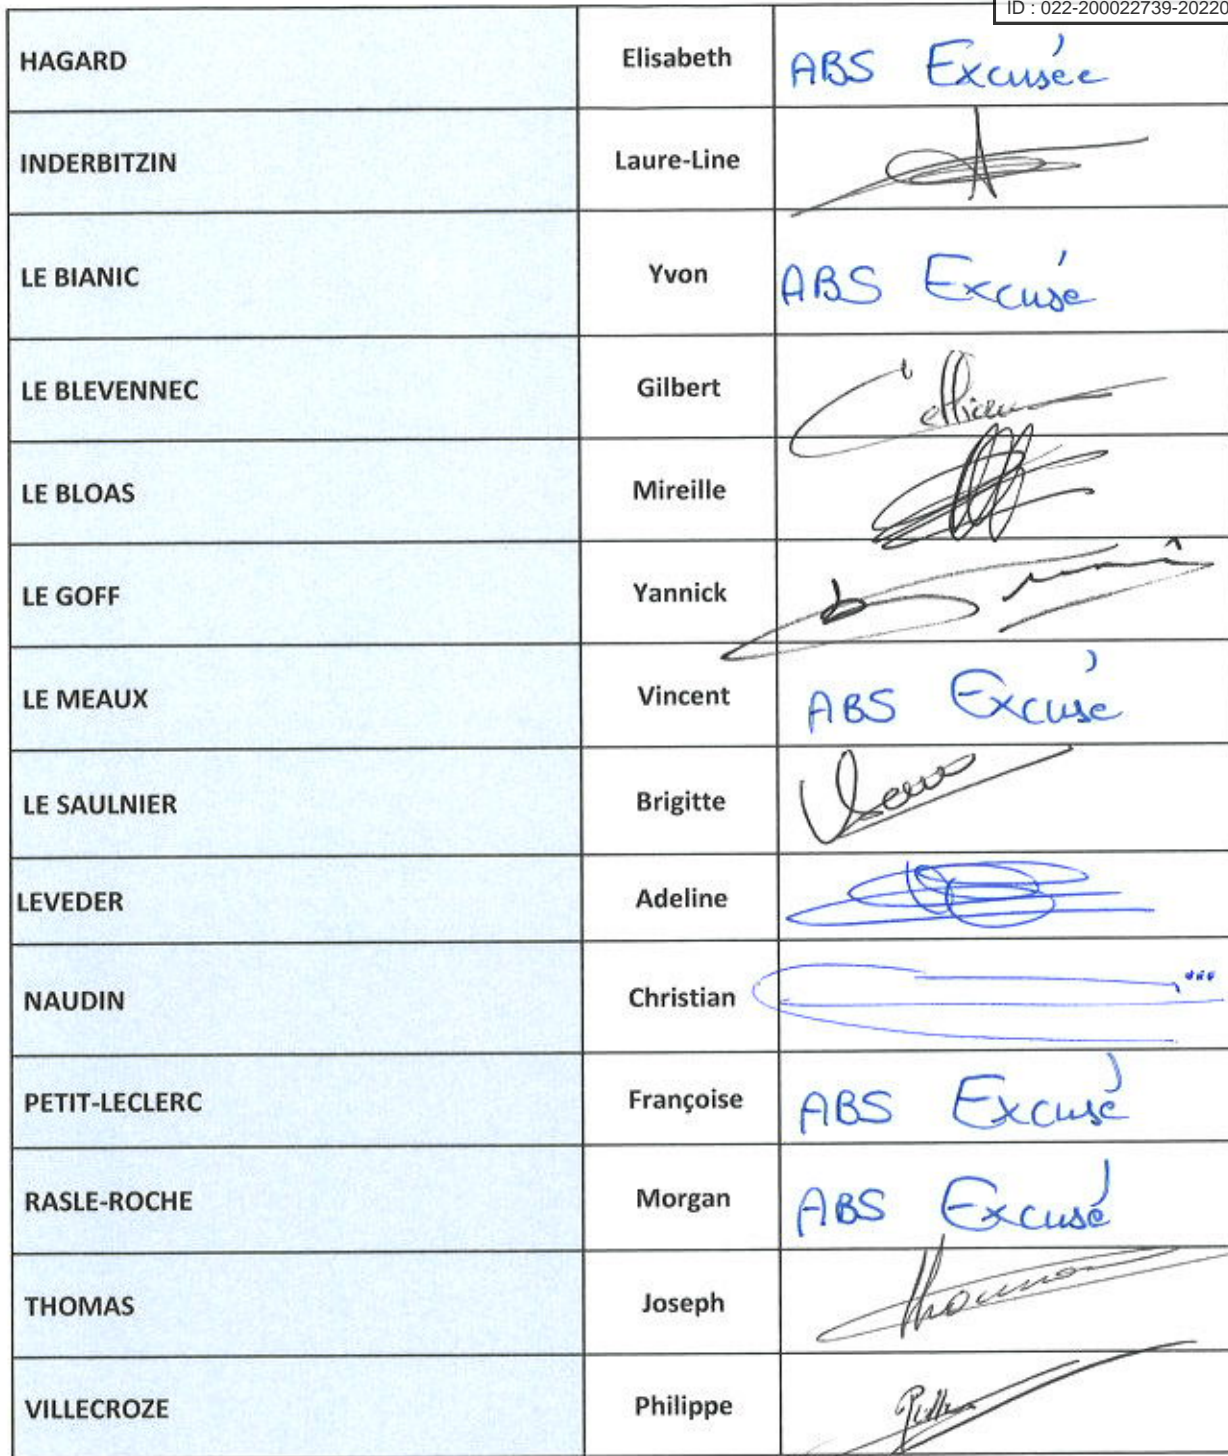 ID : 022-200022739-20220
HAGARD Elisabeth ABS Excusée
INDERBITZIN Laure-Line
LE BIANIC Yvon ABS Excusé
LE BLEVENNEC Gilbert
LE BLOAS Mireille
LE GOFF Yannick
LE MEAUX Vincent ABS Excusé
LE SAULNIER Brigitte
LEVEDER Adeline
NAUDIN Christian
PETIT-LECLERC Françoise ABS Excusé
RASLE-ROCHE Morgan ABS Excusé
THOMAS Joseph
VILLECROZE Philippe